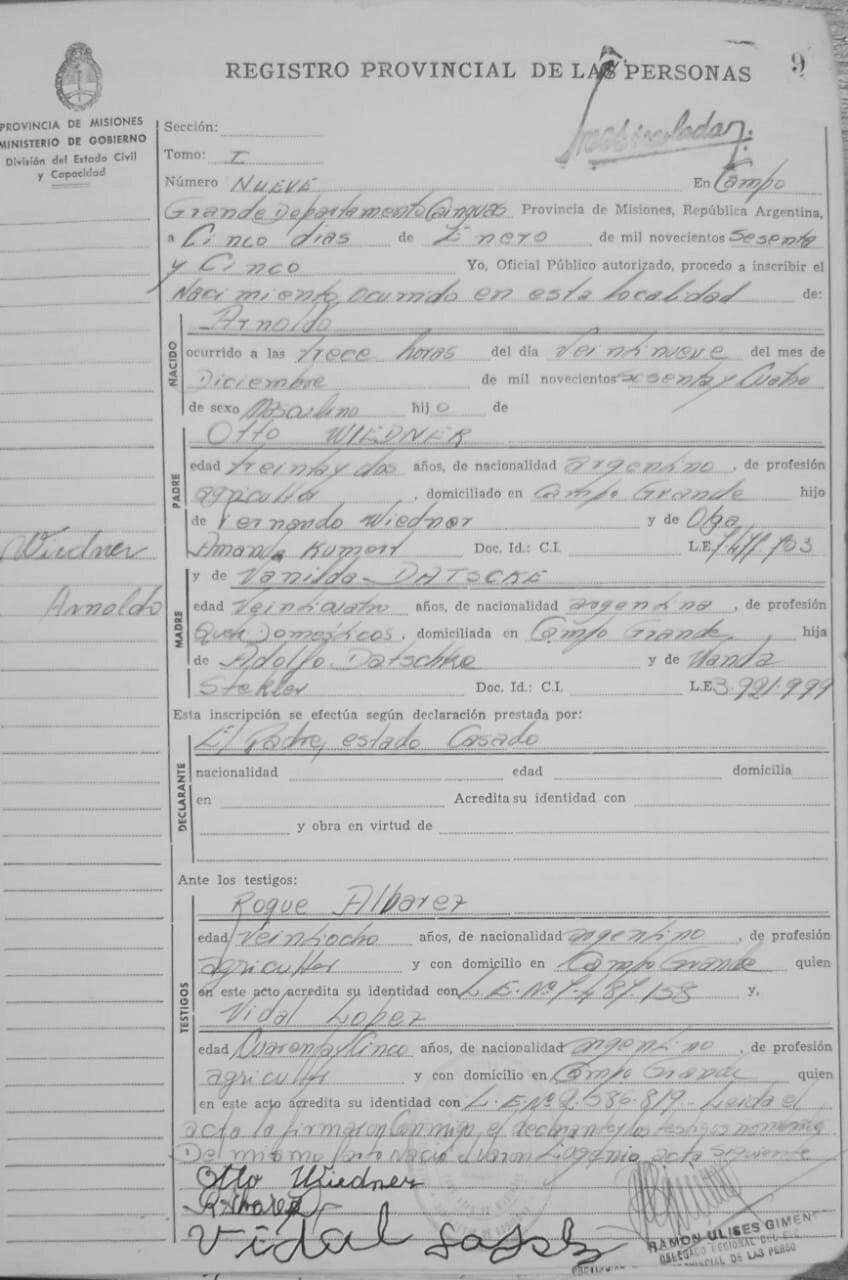 REGISTRO PROVINCIAL DE LAS PERSONAS
9
PROVINCIA DE MISIONES
MINISTERIO DE GOBIERNO
División del Estado Civil
y Capacidad
Sección:
Tomo: I
Número NUEVE En Campo
Grande Departamento Cainguas Provincia de Misiones, República Argentina,
a Cinco dias de Enero de mil novecientos Sesenta
y Cinco Yo, Oficial Público autorizado, procedo a inscribir el
Nacimiento ocurrido en esta localidad de:
NACIDO
Arnoldo
ocurrido a las trece horas del día Veintinueve del mes de
Diciembre de mil novecientos sesenta y Cuatro
de sexo Masculino hijo de
PADRE
Otto WIEDNER
edad treinta y dos años, de nacionalidad argentino, de profesión
agricultor, domiciliado en Campo Grande hijo
de Fernando Wiedner y de Olga
Amanda Doc. Id.: C.I. L.E.
Wiedner
Arnoldo
MADRE
y de Vanilda DATSCKE
edad Veinticuatro años, de nacionalidad argentina, de profesión
Queh Domesticos, domiciliada en Campo Grande, hija
de Adolfo Datschke y de Wanda
Stekler Doc. Id.: C.I. L.E. 3.921.999
Esta inscripción se efectúa según declaración prestada por:
DECLARANTE
El Padre, estado Casado
nacionalidad edad domicilia
en Acredita su identidad con
y obra en virtud de
Ante los testigos:
TESTIGOS
Roque Albarez
edad Veintiocho años, de nacionalidad argentino, de profesión
agricultor y con domicilio en Campo Grande quien
en este acto acredita su identidad con L.E.Nº 7.487.158 y,
Vidal Lopez
edad Cuarenta y Cinco años, de nacionalidad argentino, de profesión
agricultor y con domicilio en Campo Grande quien
en este acto acredita su identidad con L.E Nº 2.586.819 - Leida el
acta la firmaron Conmigo, el declarante y los testigos
Del mismo parto nació el varon Eugenio acta siguiente
Otto Wiedner
Vidal
RAMON ULISES GIMEN